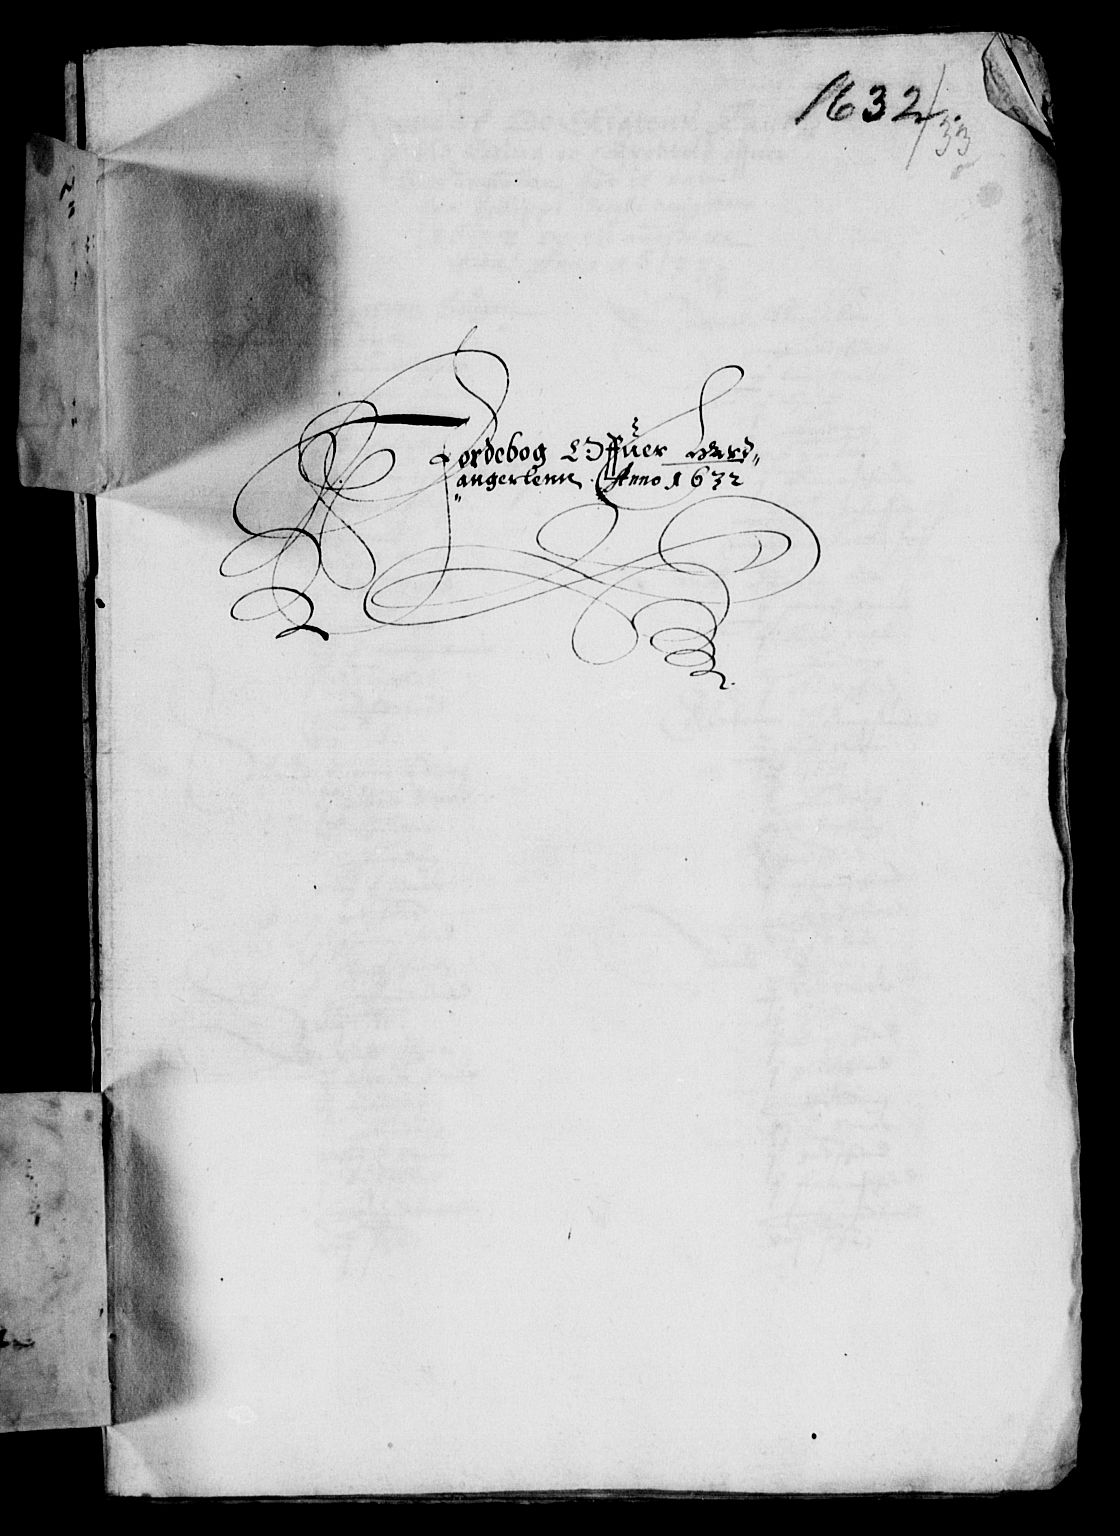 1632/33
Jordebog Offuer Hard„
„angerlenn Anno 1632